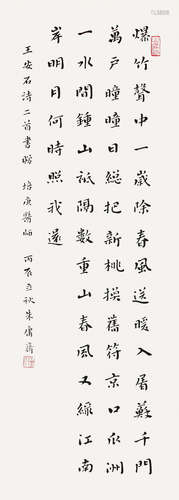 爆竹聲中一歲除春風送暖入屠蘇千門
萬戶瞳瞳日總把新桃換舊符京口瓜洲
一水間鍾山祇隔數重山春風又綠江南
岸明月何時照我還
王安石詩二首書贈 培庚醫師 丙辰立秋朱庸齋